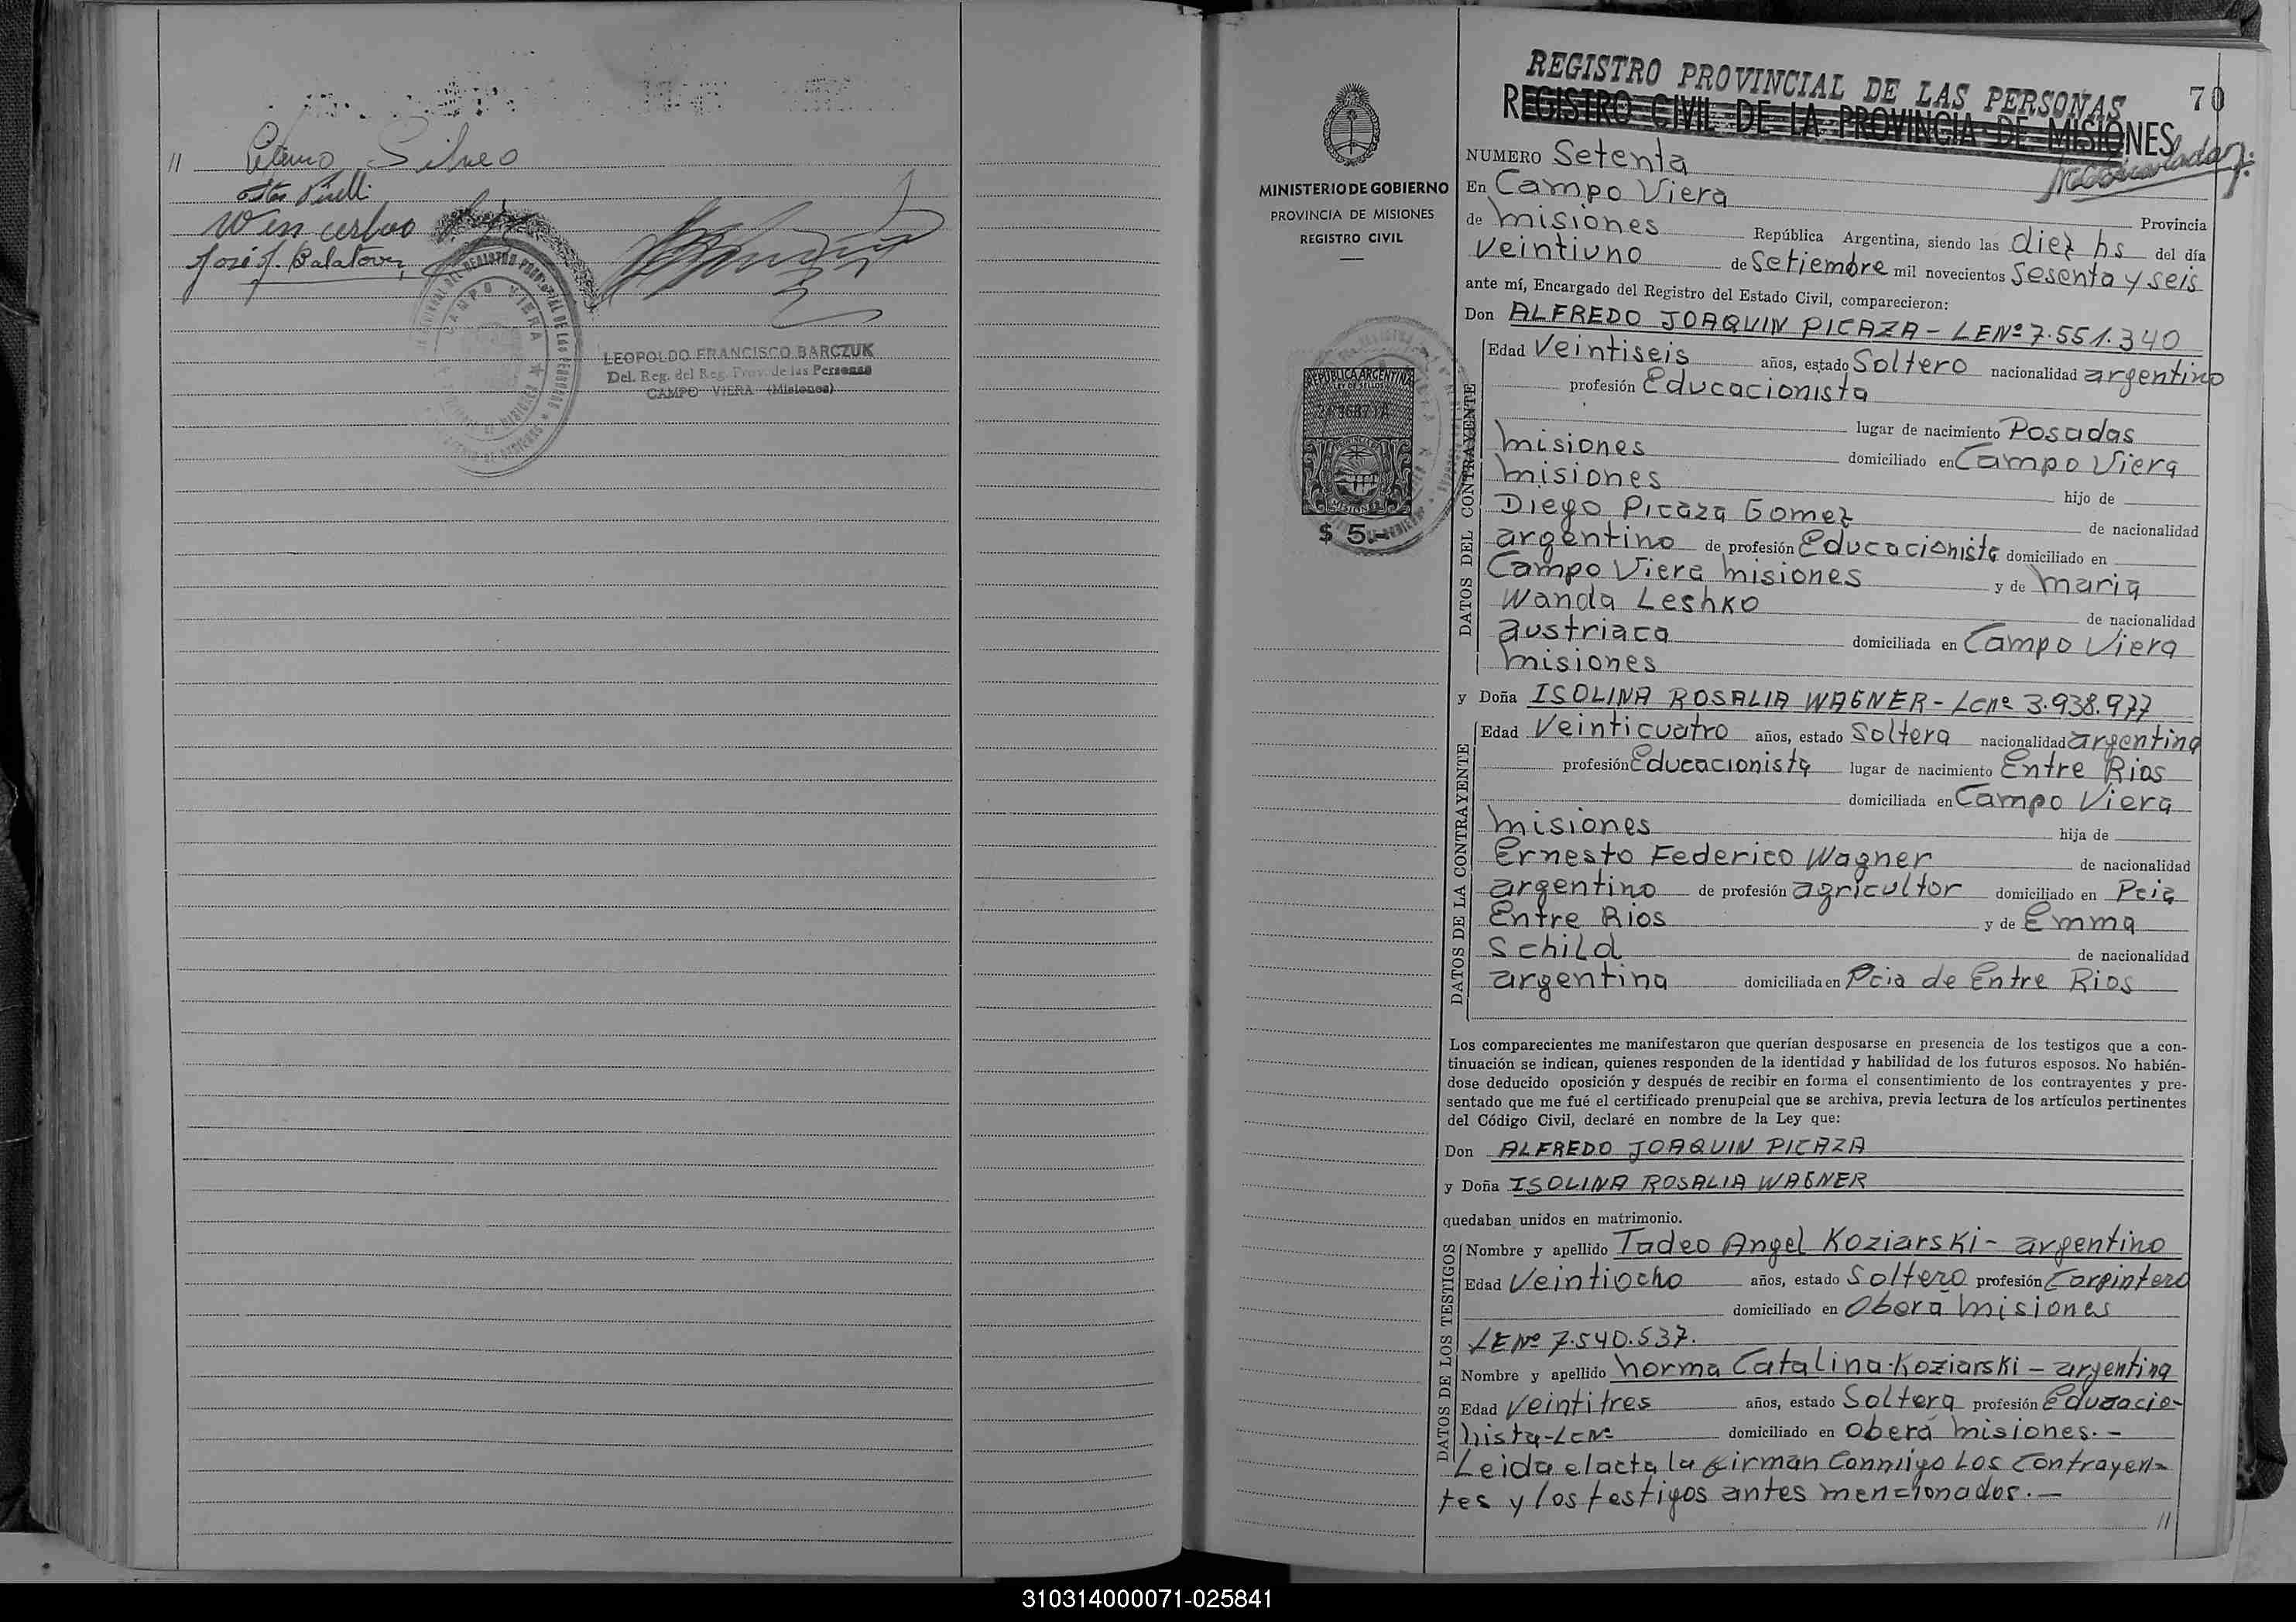 // Silveo
José J. Balatover
CAMPO VIERA
LEOPOLDO FRANCISCO BARCZUK
Del. Reg. del Reg. Prov. de las Personas
CAMPO VIERA (Misiones)
REGISTRO PROVINCIAL DE LAS PERSONAS
REGISTRO CIVIL DE LA PROVINCIA DE MISIONES
70
MINISTERIO DE GOBIERNO
PROVINCIA DE MISIONES
REGISTRO CIVIL
REPUBLICA ARGENTINA
LEY DE SELLOS
MISIONES
$ 5.-
NUMERO Setenta
En Campo Viera
Provincia
de Misiones República Argentina, siendo las diez hs del día
veintiuno de Setiembre mil novecientos Sesenta y seis
ante mí, Encargado del Registro del Estado Civil, comparecieron:
Don ALFREDO JOAQUIN PICAZA - LENº 7.551.340
DATOS DEL CONTRAYENTE
Edad Veintiseis años, estado Soltero nacionalidad argentino
profesión Educacionista
lugar de nacimiento Posadas
Misiones domiciliado en Campo Viera
Misiones hijo de
Diego Picaza Gomez de nacionalidad
argentino de profesión Educacionista domiciliado en
Campo Viera Misiones y de Maria
Wanda Leshko de nacionalidad
austriaca domiciliada en Campo Viera
Misiones
y Doña ISOLINA ROSALIA WAGNER - LCNº 3.938.977
DATOS DE LA CONTRAYENTE
Edad Veinticuatro años, estado Soltera nacionalidad argentina
profesión Educacionista lugar de nacimiento Entre Rios
domiciliada en Campo Viera
Misiones hija de
Ernesto Federico Wagner de nacionalidad
argentino de profesión agricultor domiciliado en Pcia
Entre Rios y de Emma
Schild de nacionalidad
argentina domiciliada en Pcia de Entre Rios
Los comparecientes me manifestaron que querían desposarse en presencia de los testigos que a con-
tinuación se indican, quienes responden de la identidad y habilidad de los futuros esposos. No habién-
dose deducido oposición y después de recibir en forma el consentimiento de los contrayentes y pre-
sentado que me fué el certificado prenupcial que se archiva, previa lectura de los artículos pertinentes
del Código Civil, declaré en nombre de la Ley que:
Don ALFREDO JOAQUIN PICAZA
y Doña ISOLINA ROSALIA WAGNER
quedaban unidos en matrimonio.
DATOS DE LOS TESTIGOS
Nombre y apellido Tadeo Angel Koziarski - argentino
Edad Veintiocho años, estado Soltero profesión Carpintero
domiciliado en Oberá Misiones
LENº 7.540.537.
Nombre y apellido Norma Catalina Koziarski - argentina
Edad Veintitres años, estado Soltera profesión Educacio-
nista - LCNº domiciliado en Oberá Misiones. -
Leida el acta la firman Conmigo Los Contrayen-
tes y los testigos antes mencionados. -
//
310314000071-025841